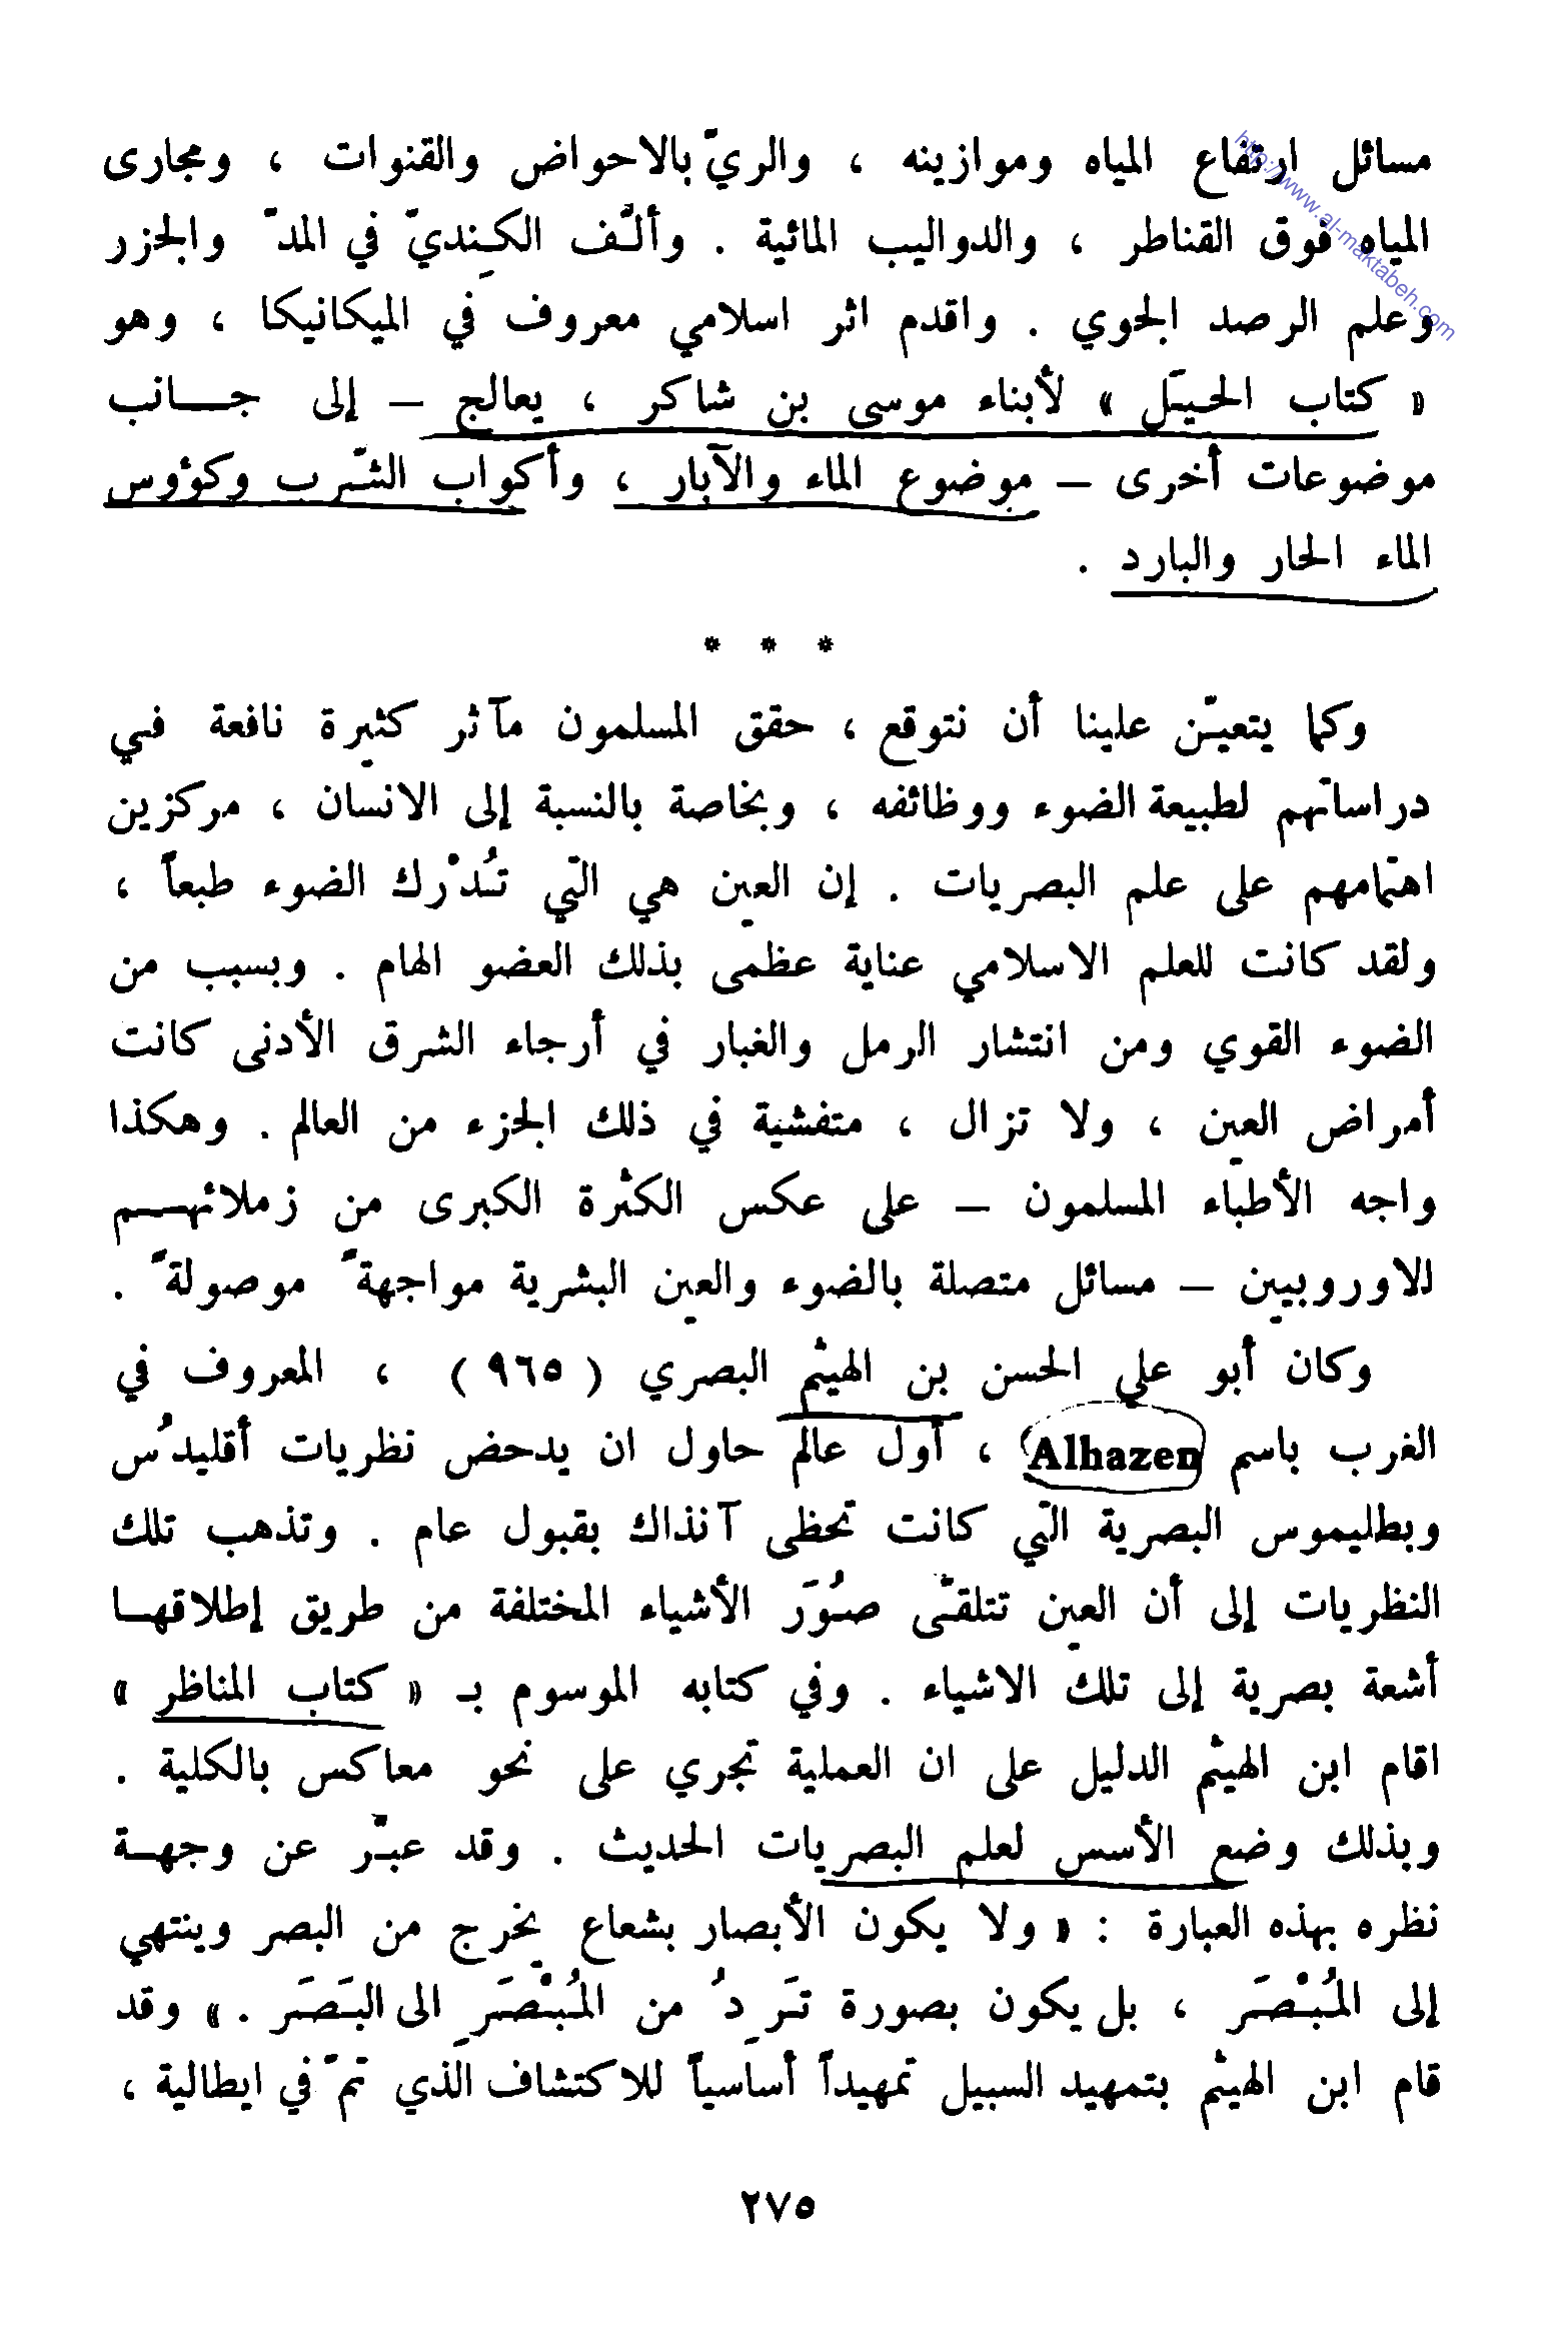 مسائل ارتفاع المياه وموازينه ، والريّ بالاحواض والقنوات ، ومجارى
المياه فوق القناطر ، والدواليب المائية . وألّف الكِنديّ في المدّ والجزر
وعلم الرصد الجوي . واقدم اثر اسلامي معروف في الميكانيكا ، وهو
« كتاب الحيَل » لأبناء موسى بن شاكر ، يعالج – إلى جانب
موضوعات أخرى – موضوع الماء والآبار ، وأكواب الشّرب وكؤوس
الماء الحار والبارد .
* * *
وكما يتعيّن علينا أن نتوقع ، حقق المسلمون مآثر كثيرة نافعة في
دراساتهم لطبيعة الضوء ووظائفه ، وبخاصة بالنسبة إلى الانسان ، مركزين
اهتمامهم على علم البصريات . إن العين هي التي تُدْرك الضوء طبعاً ،
ولقد كانت للعلم الاسلامي عناية عظمى بذلك العضو الهام . وبسبب من
الضوء القوي ومن انتشار الرمل والغبار في أرجاء الشرق الأدنى كانت
أمراض العين ، ولا تزال ، متفشية في ذلك الجزء من العالم . وهكذا
واجه الأطباء المسلمون – على عكس الكثرة الكبرى من زملائهم
للاوروبيين – مسائل متصلة بالضوء والعين البشرية مواجهةً موصولةً .
وكان أبو علي الحسن بن الهيثم البصري ( ٩٦٥ ) ، المعروف في
الغرب باسم Alhazen ، أول عالم حاول ان يدحض نظريات أقليدُس
وبطليموس البصرية التي كانت تحظى آنذاك بقبول عام . وتذهب تلك
النظريات إلى أن العين تتلقّى صُوَر الأشياء المختلفة من طريق إطلاقها
أشعة بصرية إلى تلك الاشياء . وفي كتابه الموسوم بـ « كتاب المناظر »
اقام ابن الهيثم الدليل على ان العملية تجري على نحو معاكس بالكلية .
وبذلك وضع الأسس لعلم البصريات الحديث . وقد عبّر عن وجهة
نظره بهذه العبارة : « ولا يكون الأبصار بشعاع يخرج من البصر وينتهي
إلى المُبْصَر ، بل يكون بصورة تَرِدُ من المُبْصَرِ الى البَصَر . » وقد
قام ابن الهيثم بتمهيد السبيل تمهيداً أساسياً للاكتشاف الذي تمّ في ايطالية ،
٢٧٥
http://www.al-maktabeh.com